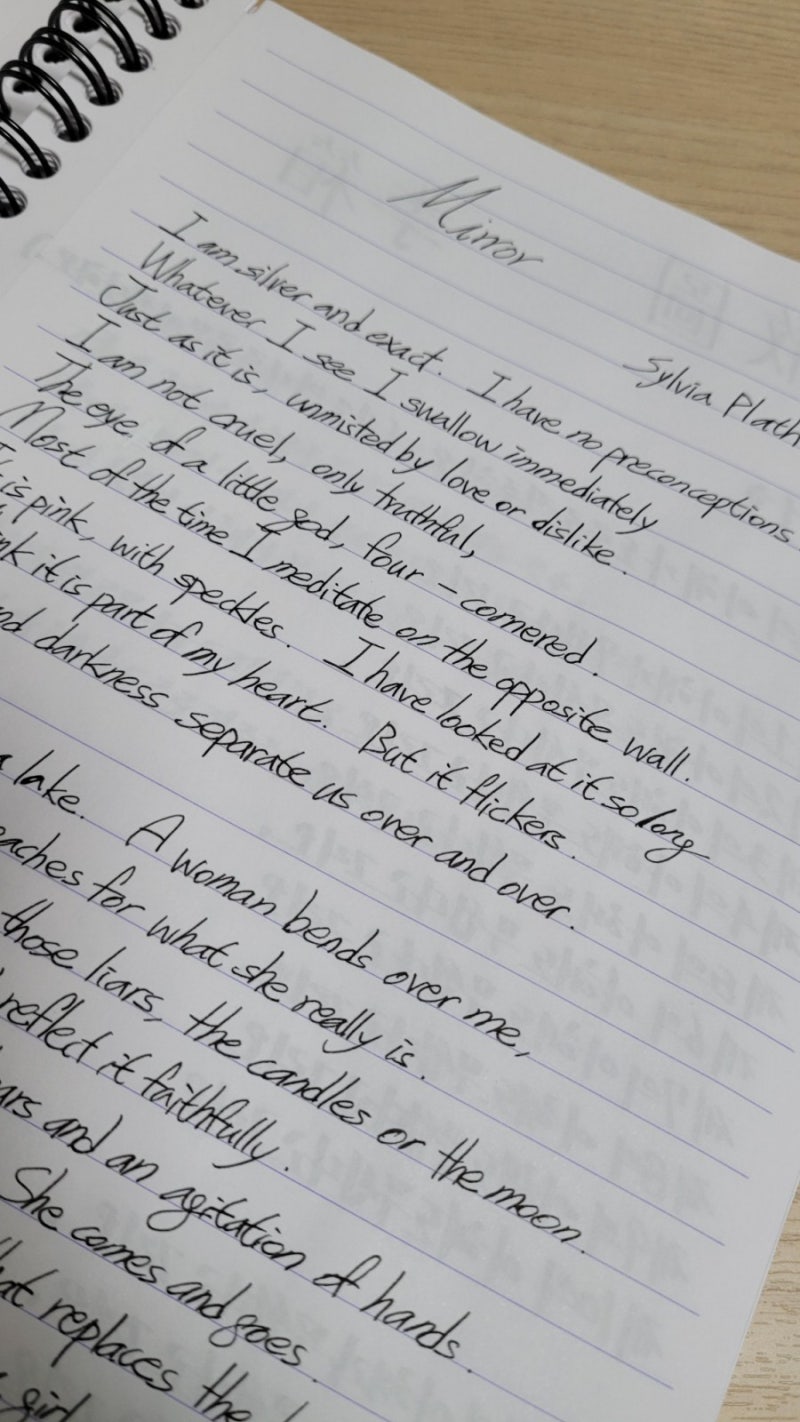 Mirror
Sylvia Plath
I am silver and exact. I have no preconceptions
Whatever I see I swallow immediately
Just as it is, unmisted by love or dislike.
I am not cruel, only truthful,
The eye of a little god, four-cornered.
Most of the time I meditate on the opposite wall.
is pink, with speckles. I have looked at it so long
it is part of my heart. But it flickers.
darkness separate us over and over.
lake. A woman bends over me,
for what she really is.
those liars, the candles or the moon.
reflect it faithfully.
and an agitation of hands.
She comes and goes.
replaces the
girl